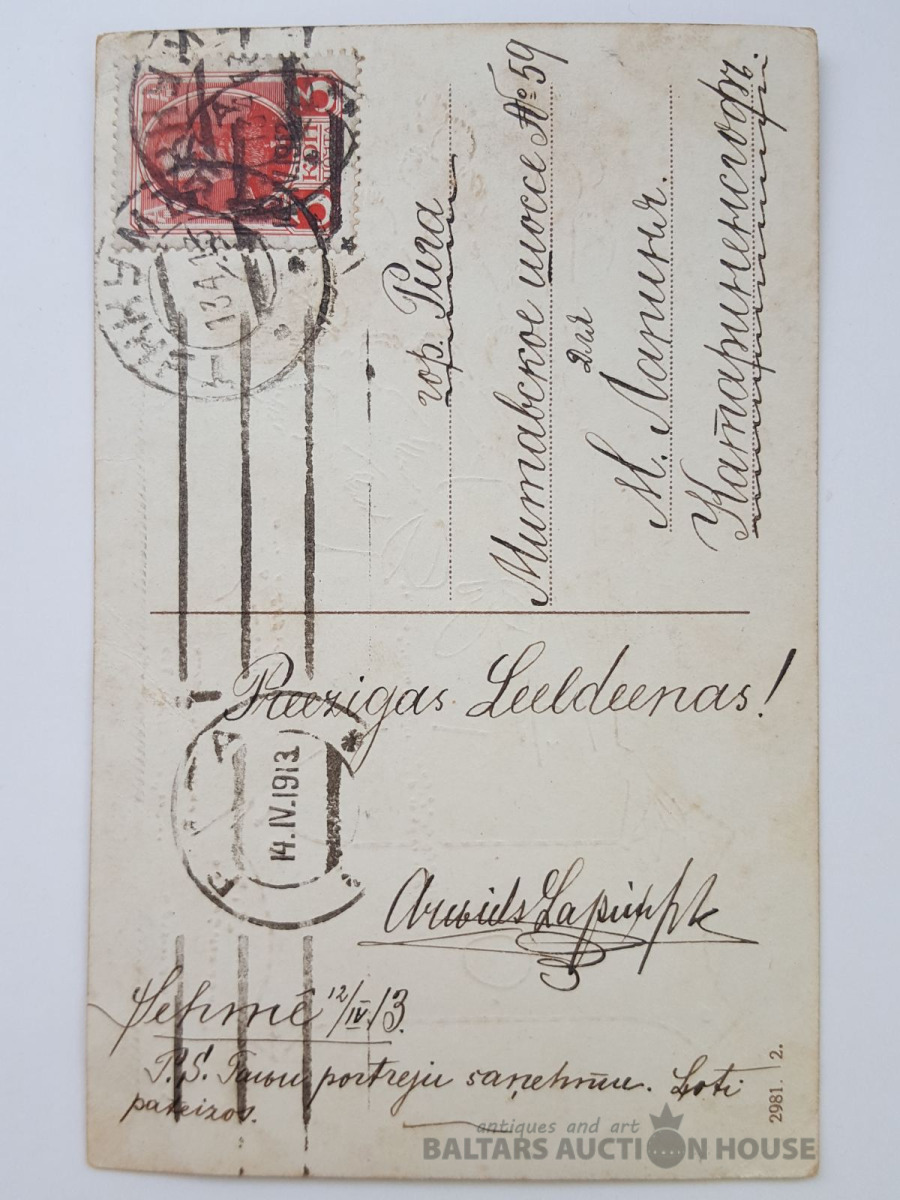 3 3
КОП
ПОЧТА
13.4.13
гор. Рига
Митавское шоссе № 59
для
М. Лапиня.
Катариненсгофъ.
Preezigas Leeldeenas!
РИГА
14.IV.1913
Arwids
Sehmē 12/IV 13.
P.S. Tawu portreju saņehmu. Ļoti
pateizos.
2981. 2.
antiques and art
BALTARS AUCTION HOUSE